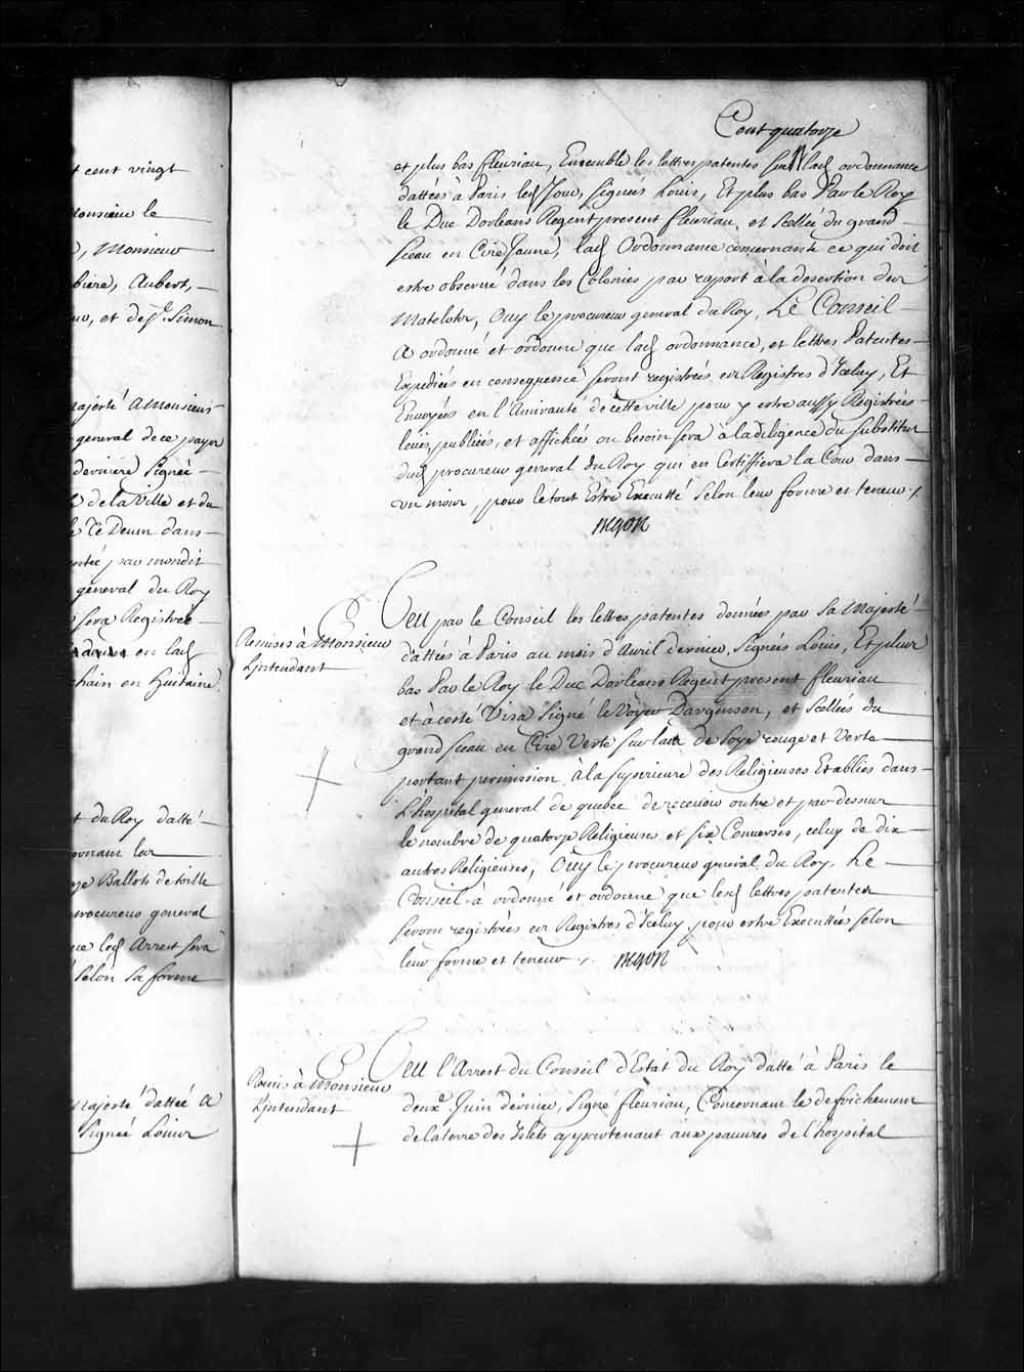 t cent vingt
Monsieur le
, Monsieur
biere, Aubert,
et de St. Simon
Majesté A Monsieur
general de ce payer
derniere Signée
de la Ville et du
le Te Deum dans
par mondit
general du Roy
sera Registrée
en lad
chain en huitaine
t du Roy datté
Ballots de toille
procureur general
que led Arrest sera
Selon sa forme
Majesté dattée a
Signée Louis
Cent quatorze
et plus bas fleuriau, Ensemble les lettres patentes sur lad ordonnance
dattées à Paris led Jour, signées Louis, Et plus bas Par le Roy
le Duc Dorleans Regent present fleuriau, et scellée du grand
sceau en Cire Jaune, lad Ordonnance concernant ce qui doit
estre observé dans les Colonies par raport à la desertion der
Matelots, Ouy le procureur general du Roy, Le Conseil
A ordonné et ordonne que lad ordonnance, et lettres Patentes
Expediées en consequence seront registrées ez Registres d'Iceluy, Et
Envoyées en l'Amirauté de cette ville pour y estre aussy Registrées
leües, publiées, et affichées ou besoin sera à la diligence du substitut
dud procureur general du Roy qui en Certiffiera la Cour dans
un mois, pour le tout Estre Executté Selon leur forme et teneur ./.
Begon
Remises à Monsieur
L'Intendant
Veu par le Conseil les lettres patentes données par Sa Majesté
dattées à Paris au mois d'Avril dernier, Signées Louis, Et plus
bas Par le Roy le Duc Dorleans Regent present fleuriau
et à costé Visa Signé le Voyer Dargenson, et Scellées du
grand sceau en Cire Verte sur lacs de Soye rouge et Verte
portant permission à la superieure des Religieuses Etablies dans
L'hospital general de quebec de recevoir outre et par dessus
le nombre de quatorze Religieuses et six Converses, celuy de dix
autres Religieuses, Ouy le procureur general du Roy, Le
Conseil à ordonné et ordonne que lesd lettres patentes
seront registrées ez Registres d'Iceluy pour estre Executtées Selon
leur forme et teneur ./. Begon
Remis à Monsieur
L'Intendant
Veu l'Arrest du Conseil d'Estat du Roy datté à Paris le
deuxe. Juin dernier, Signé fleuriau, Concernant le defrichement
de la terre des Islets appartenant aux pauvres de l'hospital